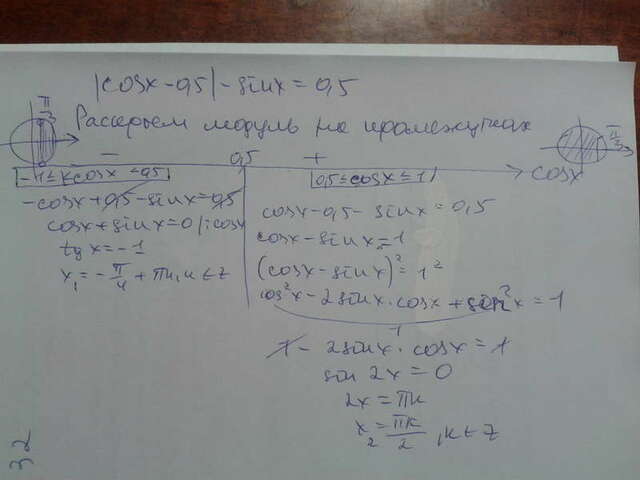 |cosx-0,5|-sinx=0,5
Раскроем модуль на промежутках
π/3
π/3
- 0,5 + cosx
-1≤cosx<0,5
0,5≤cosx≤1
-cosx+0,5-sinx=0,5
cosx+sinx=0 |:cosx
tg x=-1
x₁=-π/4+πn, n∈z
cosx-0,5-sinx=0,5
cosx-sinx=1
(cosx-sinx)²=1²
cos²x-2sinx·cosx+sin²x=1
1
1-2sinx·cosx=1
sin 2x=0
2x=πk
x₂=πk/2, k∈z
32